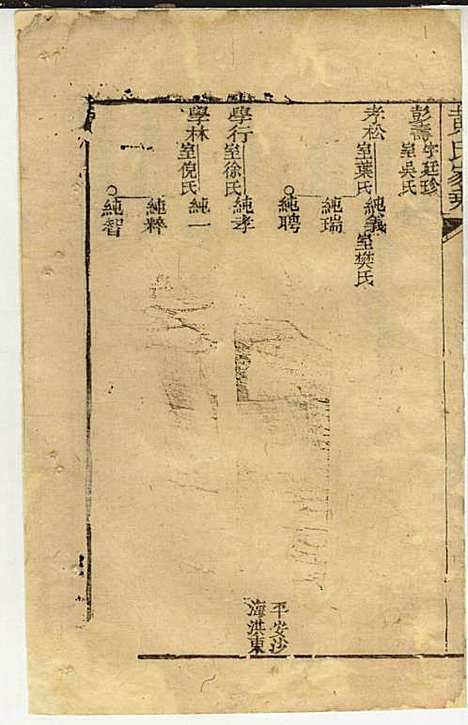 彭壽 字廷珍
室吳氏
孝松 室葉氏 純義 室樊氏
純瑞
純聘
學行 室徐氏 純孝
學林 室倪氏 純一
純粹
純智
平安沙
海洪東